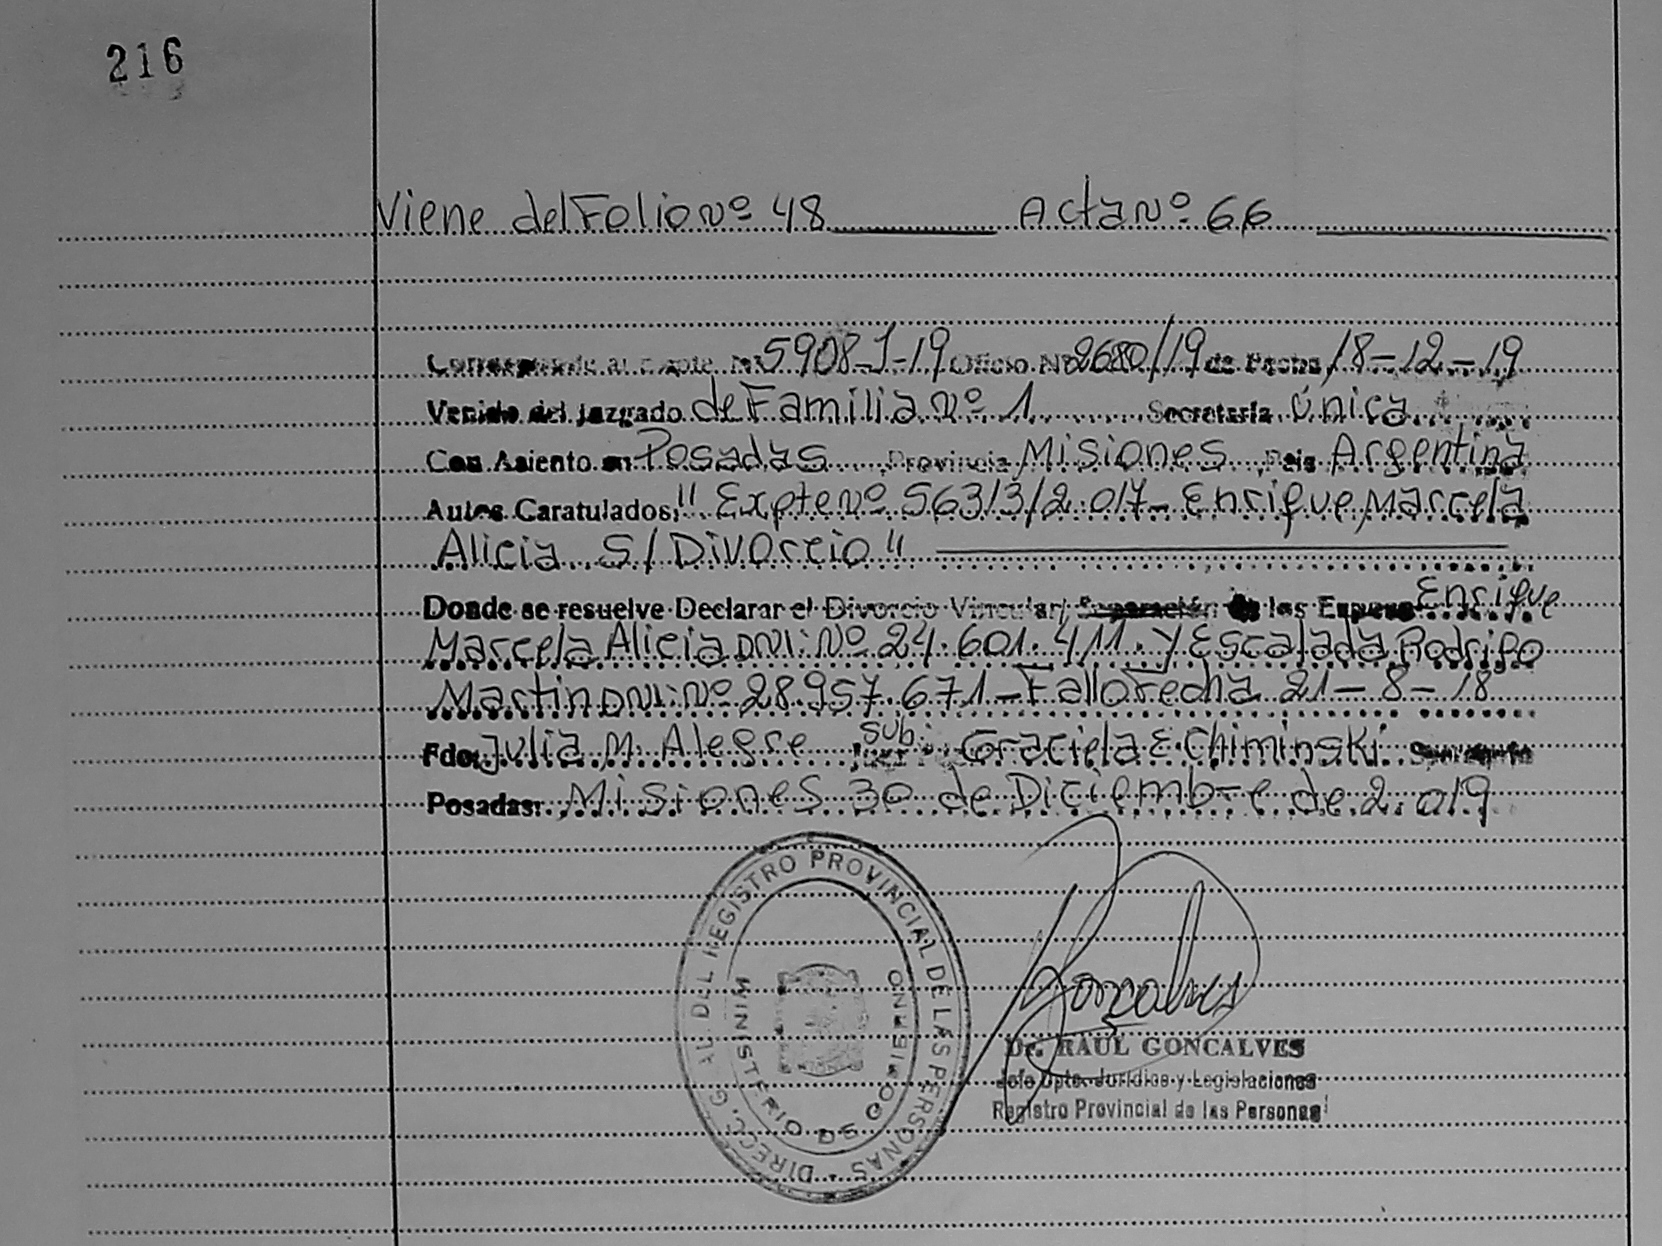 216
Viene del Folio nº 48 Acta nº 66
Corresponde al Expte. Nº 5908-J-19 Oficio Nº 2680/19 de Fecha 18-12-19
Venido del Juzgado de Familia nº 1 Secretaría Única
Con Asiento en Posadas Provincia Misiones País Argentina
Autos Caratulados: "Expte nº 56313/2.017- Enrique Marcela
Alicia S/Divorcio"
Donde se resuelve Declarar el Divorcio Vincular/ Separación de los Esposos Enrique
Marcela Alicia DNI: Nº 24.601.411. y Escalada Rodrigo
Martin DNI: Nº 28.957.671- Fallo Fecha 21-8-18
Fdo: Julia M. Alegre Juez Sub. Graciela E. Chiminski Secretaria
Posadas: Misiones 30 de Diciembre de 2.019
DIRECC. GRAL DEL REGISTRO PROVINCIAL DE LAS PERSONAS
MINISTERIO DE GOBIERNO
Goncalves
Dr. RAUL GONCALVES
Jefe Dpto. Jurídico y Legislaciones
Registro Provincial de las Personas